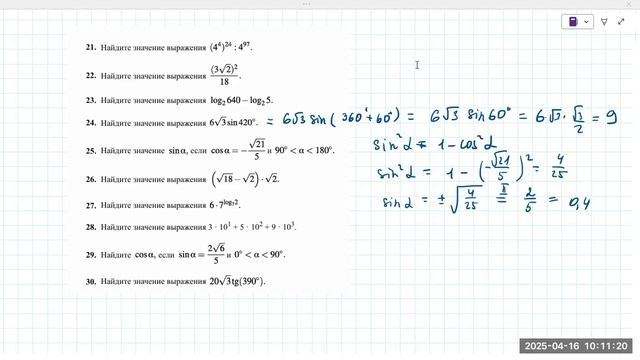 21. Найдите значение выражения (4⁴)²⁴ : 4⁹⁷.
22. Найдите значение выражения (3√2)²/18.
23. Найдите значение выражения log₂640 − log₂5.
24. Найдите значение выражения 6√3 sin 420°. = 6√3 sin (360° + 60°) = 6√3 sin 60° = 6·√3 · √3/2 = 9
sin²α = 1 − cos²α
25. Найдите значение sin α, если cos α = −√21/5 и 90° < α < 180°.
sin²α = 1 − (−√21/5)² = 4/25
26. Найдите значение выражения (√18 − √2) · √2.
sin α = ±√4/25 = 2/5 = 0,4
27. Найдите значение выражения 6 · 7^log₇2.
28. Найдите значение выражения 3 · 10¹ + 5 · 10² + 9 · 10³.
29. Найдите cos α, если sin α = 2√6/5 и 0° < α < 90°.
30. Найдите значение выражения 20√3 tg(390°).
2025-04-16 10:11:20